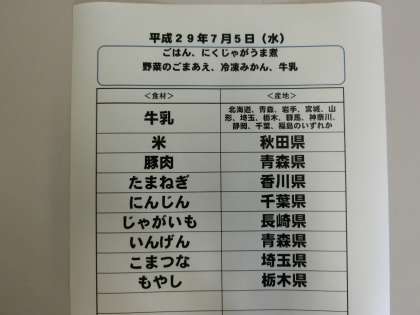 平成29年7月5日（水）
ごはん、にくじゃがうま煮
野菜のごまあえ、冷凍みかん、牛乳
＜食材＞ ＜産地＞
牛乳 北海道、青森、岩手、宮城、山
形、埼玉、栃木、群馬、神奈川、
静岡、千葉、福島のいずれか
米 秋田県
豚肉 青森県
たまねぎ 香川県
にんじん 千葉県
じゃがいも 長崎県
いんげん 青森県
こまつな 埼玉県
もやし 栃木県